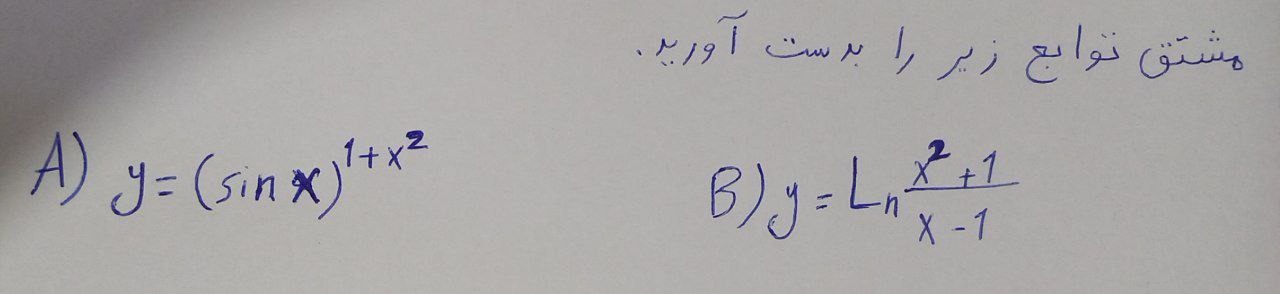 مشتق توابع زیر را بدست آورید.
A) y = (sin x)^{1+x^2}
B) y = Ln \frac{x^2+1}{x-1}